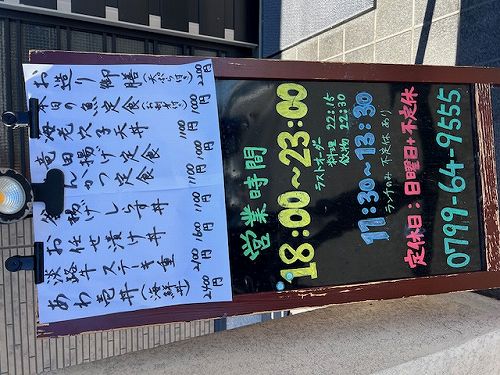 お造り御膳(天ぷら付) 2200円
の魚定食 1000円
海老穴子天丼 1100円
竜田揚げ定食 1000円
とんかつ定食 1100円
釜揚げしらす丼 1100円
お任せ漬け丼 1600円
淡路牛ステーキ重 2100円
あわ壱丼(海鮮丼) 2400円
営業時間
18:00~23:00
ラストオーダー
料理 22:15
飲物 22:30
11:30~13:30
ランチのみ 不定休あり
定休日:日曜日+不定休
0799-64-9555